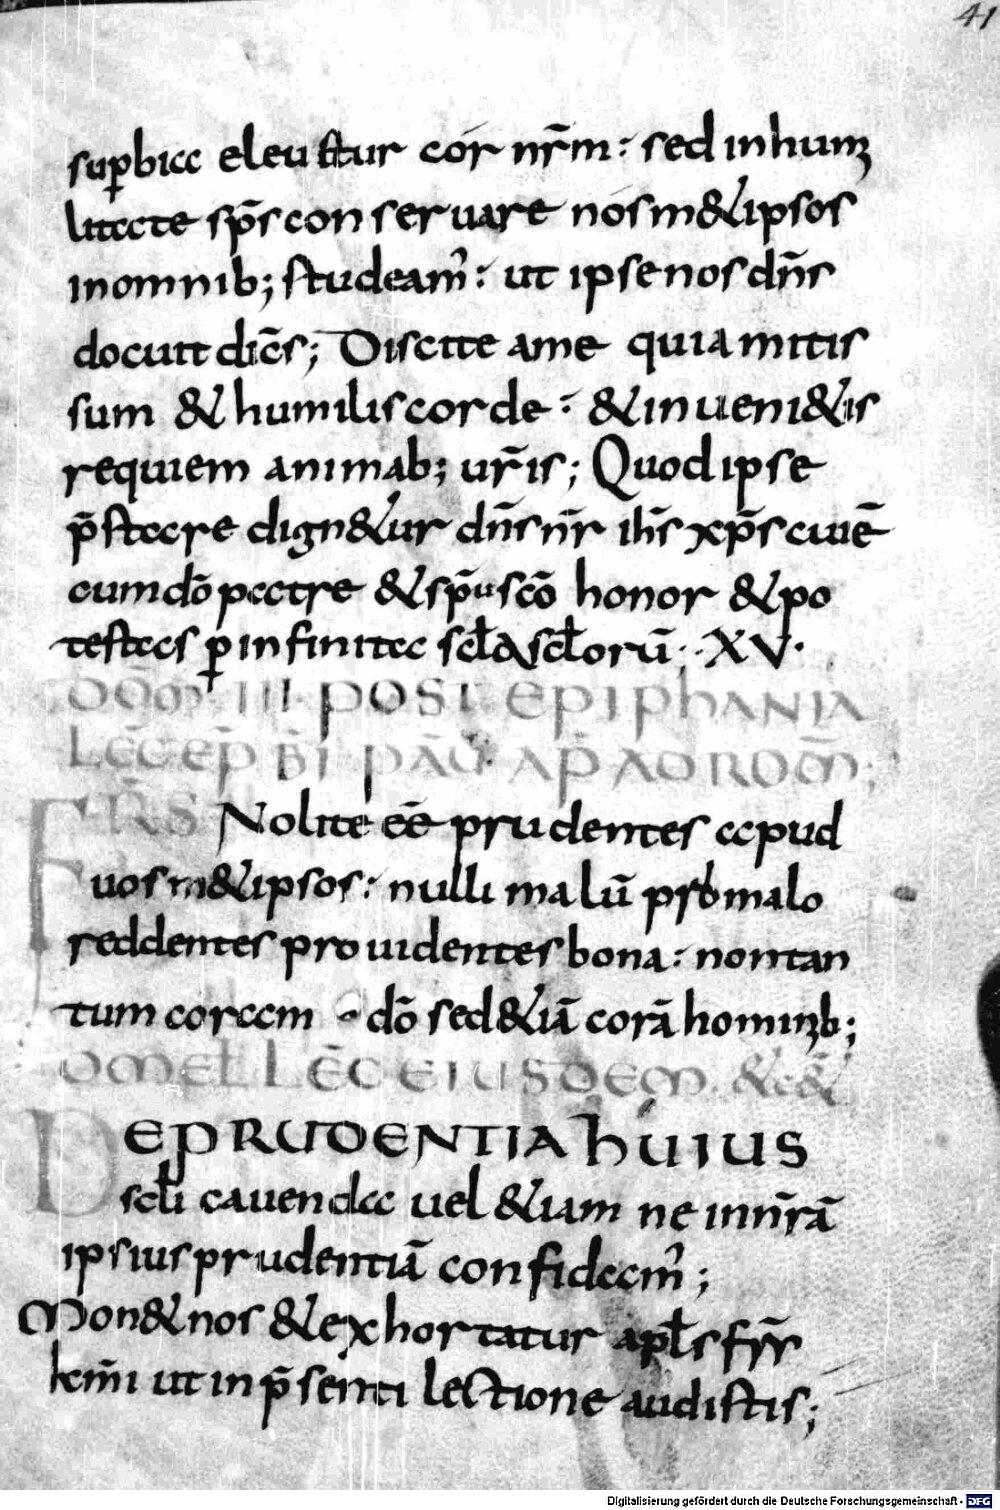 41
sup̱bia eleu&ur cor nr̄m: sed in humi
litate sp̄s conseruare nosm&ipsos
in omnib; studeam᾿: ut ipse nos dn̄s
docuit dic̄s; Discite a me quia mitis
sum & humilis corde: & inueni&is
requiem animab; ur̄is; Quod ipse
p̄stare dign&ur dn̄s nr̄ ih̄s xp̄s cui ē
cum dō patre & sp̄u scō honor & po
testas p̱ infinita scl̄a scl̄orū; · XV ·
DOM̄ III POST EPIPHANIA
LEC̄ EP̄ BI PAU AP AD ROM̄;
FR̄S Nolite eē prudentes apud
uosm&ipsos: nulli malū pro malo
reddentes prouidentes bona: non tan
tum coram dō sed &iā corā hominib;
OMEL LEC̄ EIUSDEM. &c&
DE PRUDENTIA HUIUS
scl̄i cauenda uel &iam ne in nr̄a
ipsius prudentiā confidam᾿;
Mon& nos & exhortatur apl̄s fr̄s
km̄i ut in p̄senti lectione audistis;
Digitalisierung gefördert durch die Deutsche Forschungsgemeinschaft - DFG